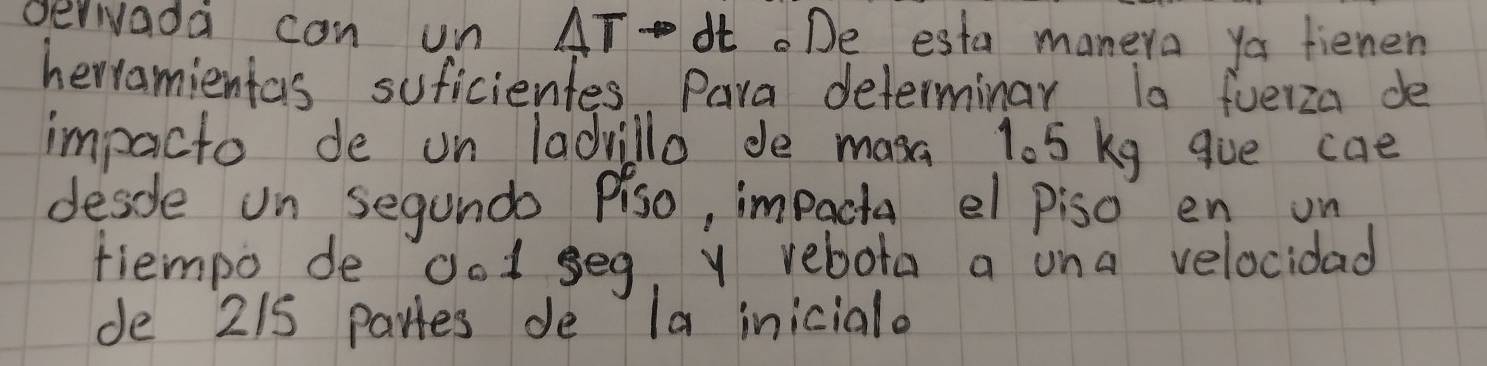 derivada con un ΔT → dt. De esta manera ya tienen
herramientas suficientes para determinar la fuerza de
impacto de un ladrillo de masa 1.5 kg que cae
desde un segundo piso, impacta el piso en un
tiempo de 0.1 seg y rebota a una velocidad
de 2/5 partes de la inicial.